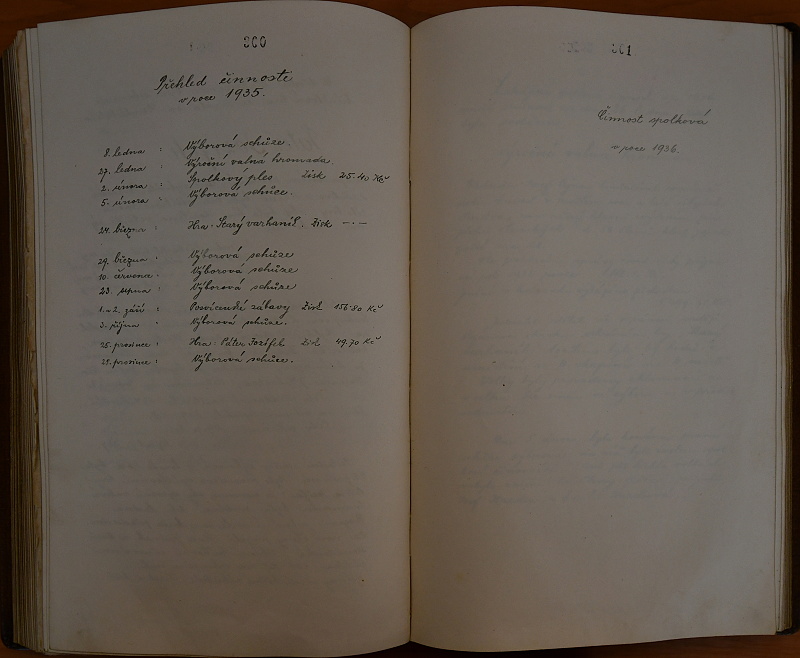 300
Přehled činnosti
v roce 1935.
8. ledna : Výborová schůze.
27. ledna : Výroční valná hromada.
2. února : Spolkový ples Zisk 25.40 Kč
5. února : Výborová schůze.
24. března : Hra: Starý varhaník. Zisk —·—
29. března : Výborová schůze
10. července : Výborová schůze
23. srpna : Výborová schůze
1. a 2. září : Posvícenské zábavy Zisk 156.80 Kč
3. října : Výborová schůze.
25. prosince : Hra: Páter Jozífek Zisk 49.70 Kč
29. prosince : Výborová schůze.
301
Činnost spolková
v roce 1936.